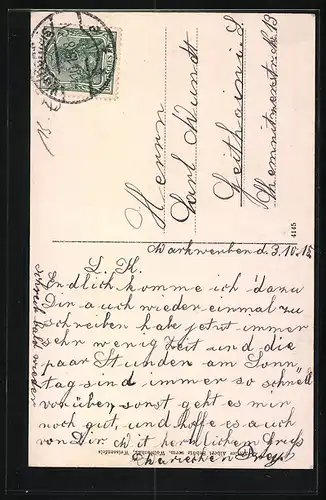 Herrn
Carl Wundt
Geithain i. S.
Chemnitzerstrasse 13
4145
Markwerben d. 3.10.15
L. K.
Endlich komme ich dazu
Dir auch wieder einmal zu
schreiben habe jetzt immer
sehr wenig Zeit und die
paar Stunden am Sonn
tag sind immer so schnell
vorüber, sonst geht es mir
noch gut, und hoffe es auch
von Dir. Mit herzlichem Gruß
schreib bald wieder